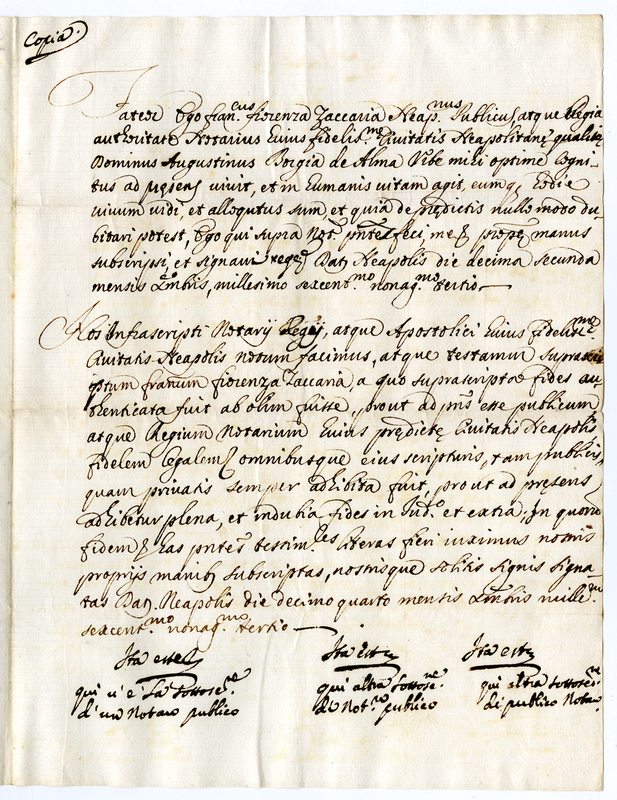 Copia.
Fateor Ego Fran.cus Fiorenza Zaccaria Neap.nus Publicus, atque Regia
authoritate Notarius huius fidelis.mę Civitatis Neapolitanę qualiter
Dominus Augustinus Borgia de Alma Vrbe mihi optime Cogni-
tus ad pręsens vivit, et in humanis vitam agit, eumq; hodie
vivum vidi, et alloqutus sum, et quia de prędictis nullo modo du-
bitari potest, Ego qui supra Not.s pntes feci, meę propę manus
subscripsi, et signavi Dat; Neapolis die decima secunda
mensis Xmbris, millesimo sexcent.mo nonag.mo tertio
Nos Infrascripti Notarij Regij, atque Apostolici huius fidelis.mę
Civitatis Neapolis notum facimus, atque testamur suprascri-
ptum francum fiorenza Zaccaria a quo suprascripta fides au-
thenticata fuit ab olim fuisse, prout ad pns esse publicum
atque Regium Notarium huius prędictę Civitatis Neapolis
fidelem legalem omnibusque eius scripturis, tam publicis,
quam privatis semper adhibita fuit, prout ad pręsens
adhibetur plena, et indubia fides in Iud.o et extra. In quorum
fidem has pntes testim.les literas fieri iuximus nostris
proprijs manib; subscriptas, nostrisque solitis signis signa-
tas Dat; Neapolis die decimo quarto mensis Xmbris mille.mo
sexcent.mo nonag.mo tertio
Ita est Ita est Ita est
qui v'è la sottoscr.ne qui altra sottoscr.ne qui altra sottoscr.ne
d'un Notaro publico di Not.ro publico di publico Notaro